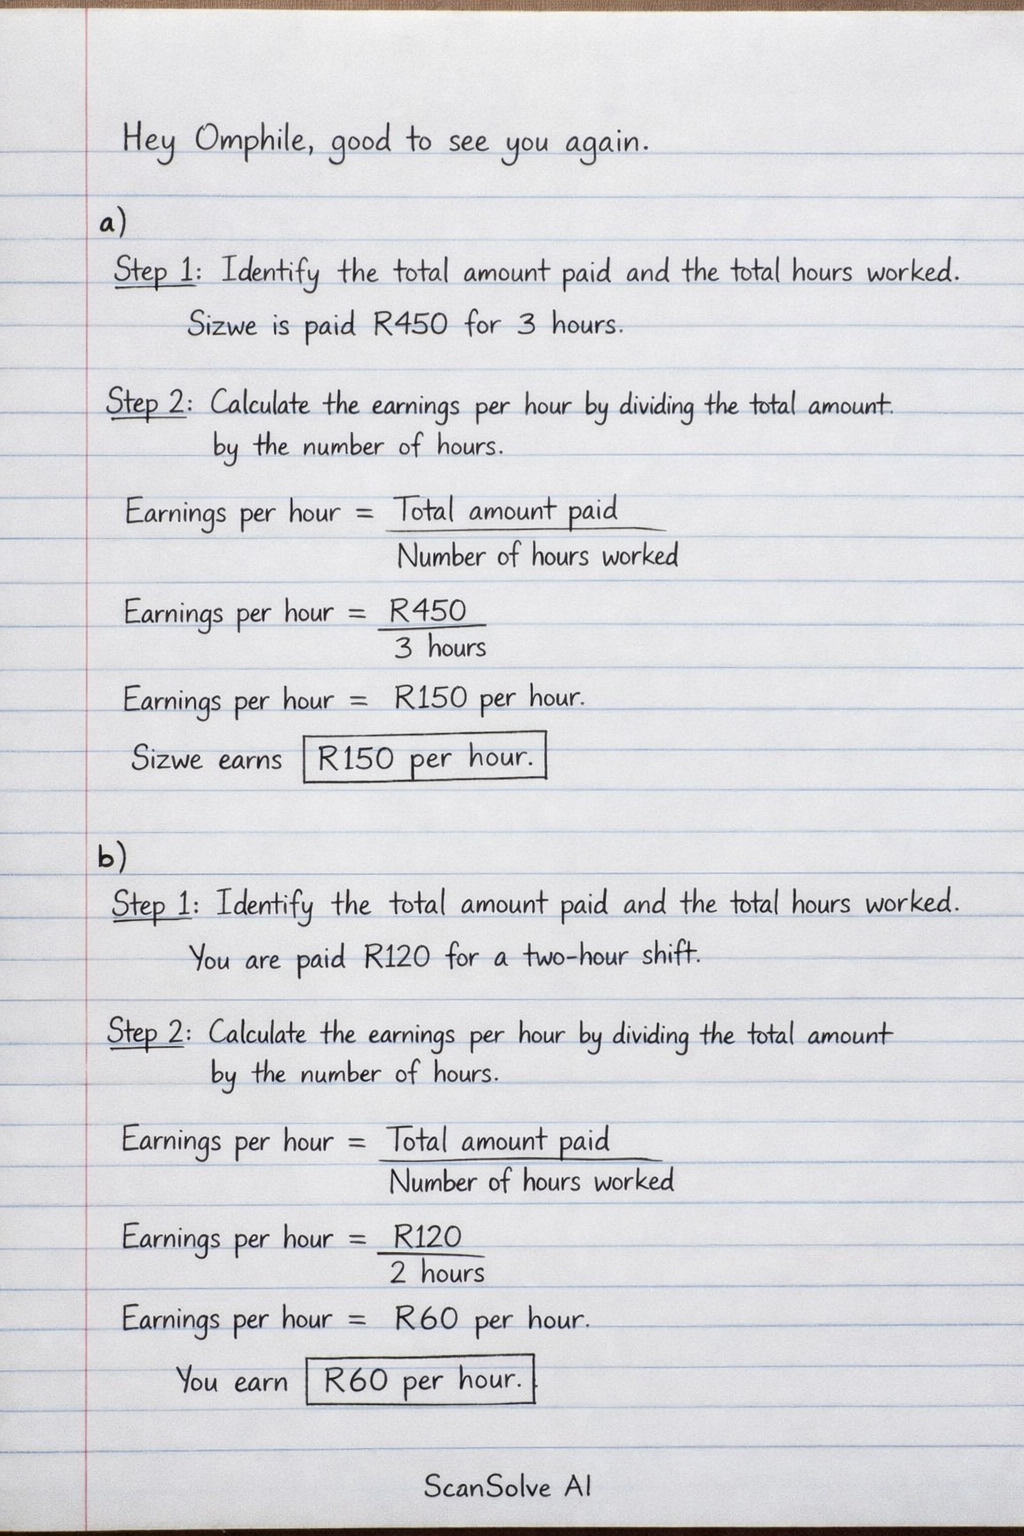 Hey Omphile, good to see you again.
a)
Step 1: Identify the total amount paid and the total hours worked.
Sizwe is paid R450 for 3 hours.
Step 2: Calculate the earnings per hour by dividing the total amount.
by the number of hours.
Earnings per hour = Total amount paid
Number of hours worked
Earnings per hour = R450
3 hours
Earnings per hour = R150 per hour.
Sizwe earns R150 per hour.
b)
Step 1: Identify the total amount paid and the total hours worked.
You are paid R120 for a two-hour shift.
Step 2: Calculate the earnings per hour by dividing the total amount
by the number of hours.
Earnings per hour = Total amount paid
Number of hours worked
Earnings per hour = R120
2 hours
Earnings per hour = R60 per hour.
You earn R60 per hour.
ScanSolve AI